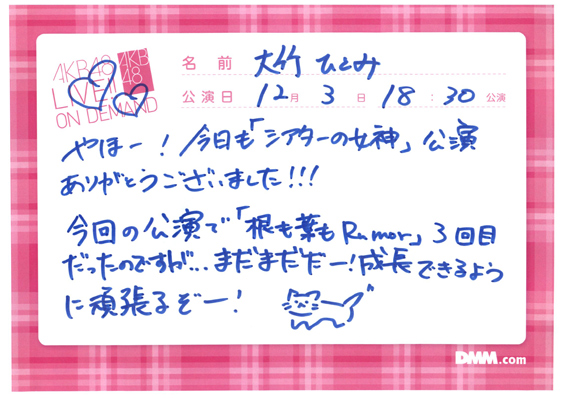 AKB48
LIVE!!
ON DEMAND
AKB
48
名前 大竹 ひとみ
公演日 12月 3日 18:30公演
やほー！今日も「シアターの女神」公演
ありがとうございました！！！
今回の公演で「根も葉もRumor」3回目
だったのですが...まだまだだー！成長できるよう
に頑張るぞー！
DMM.com